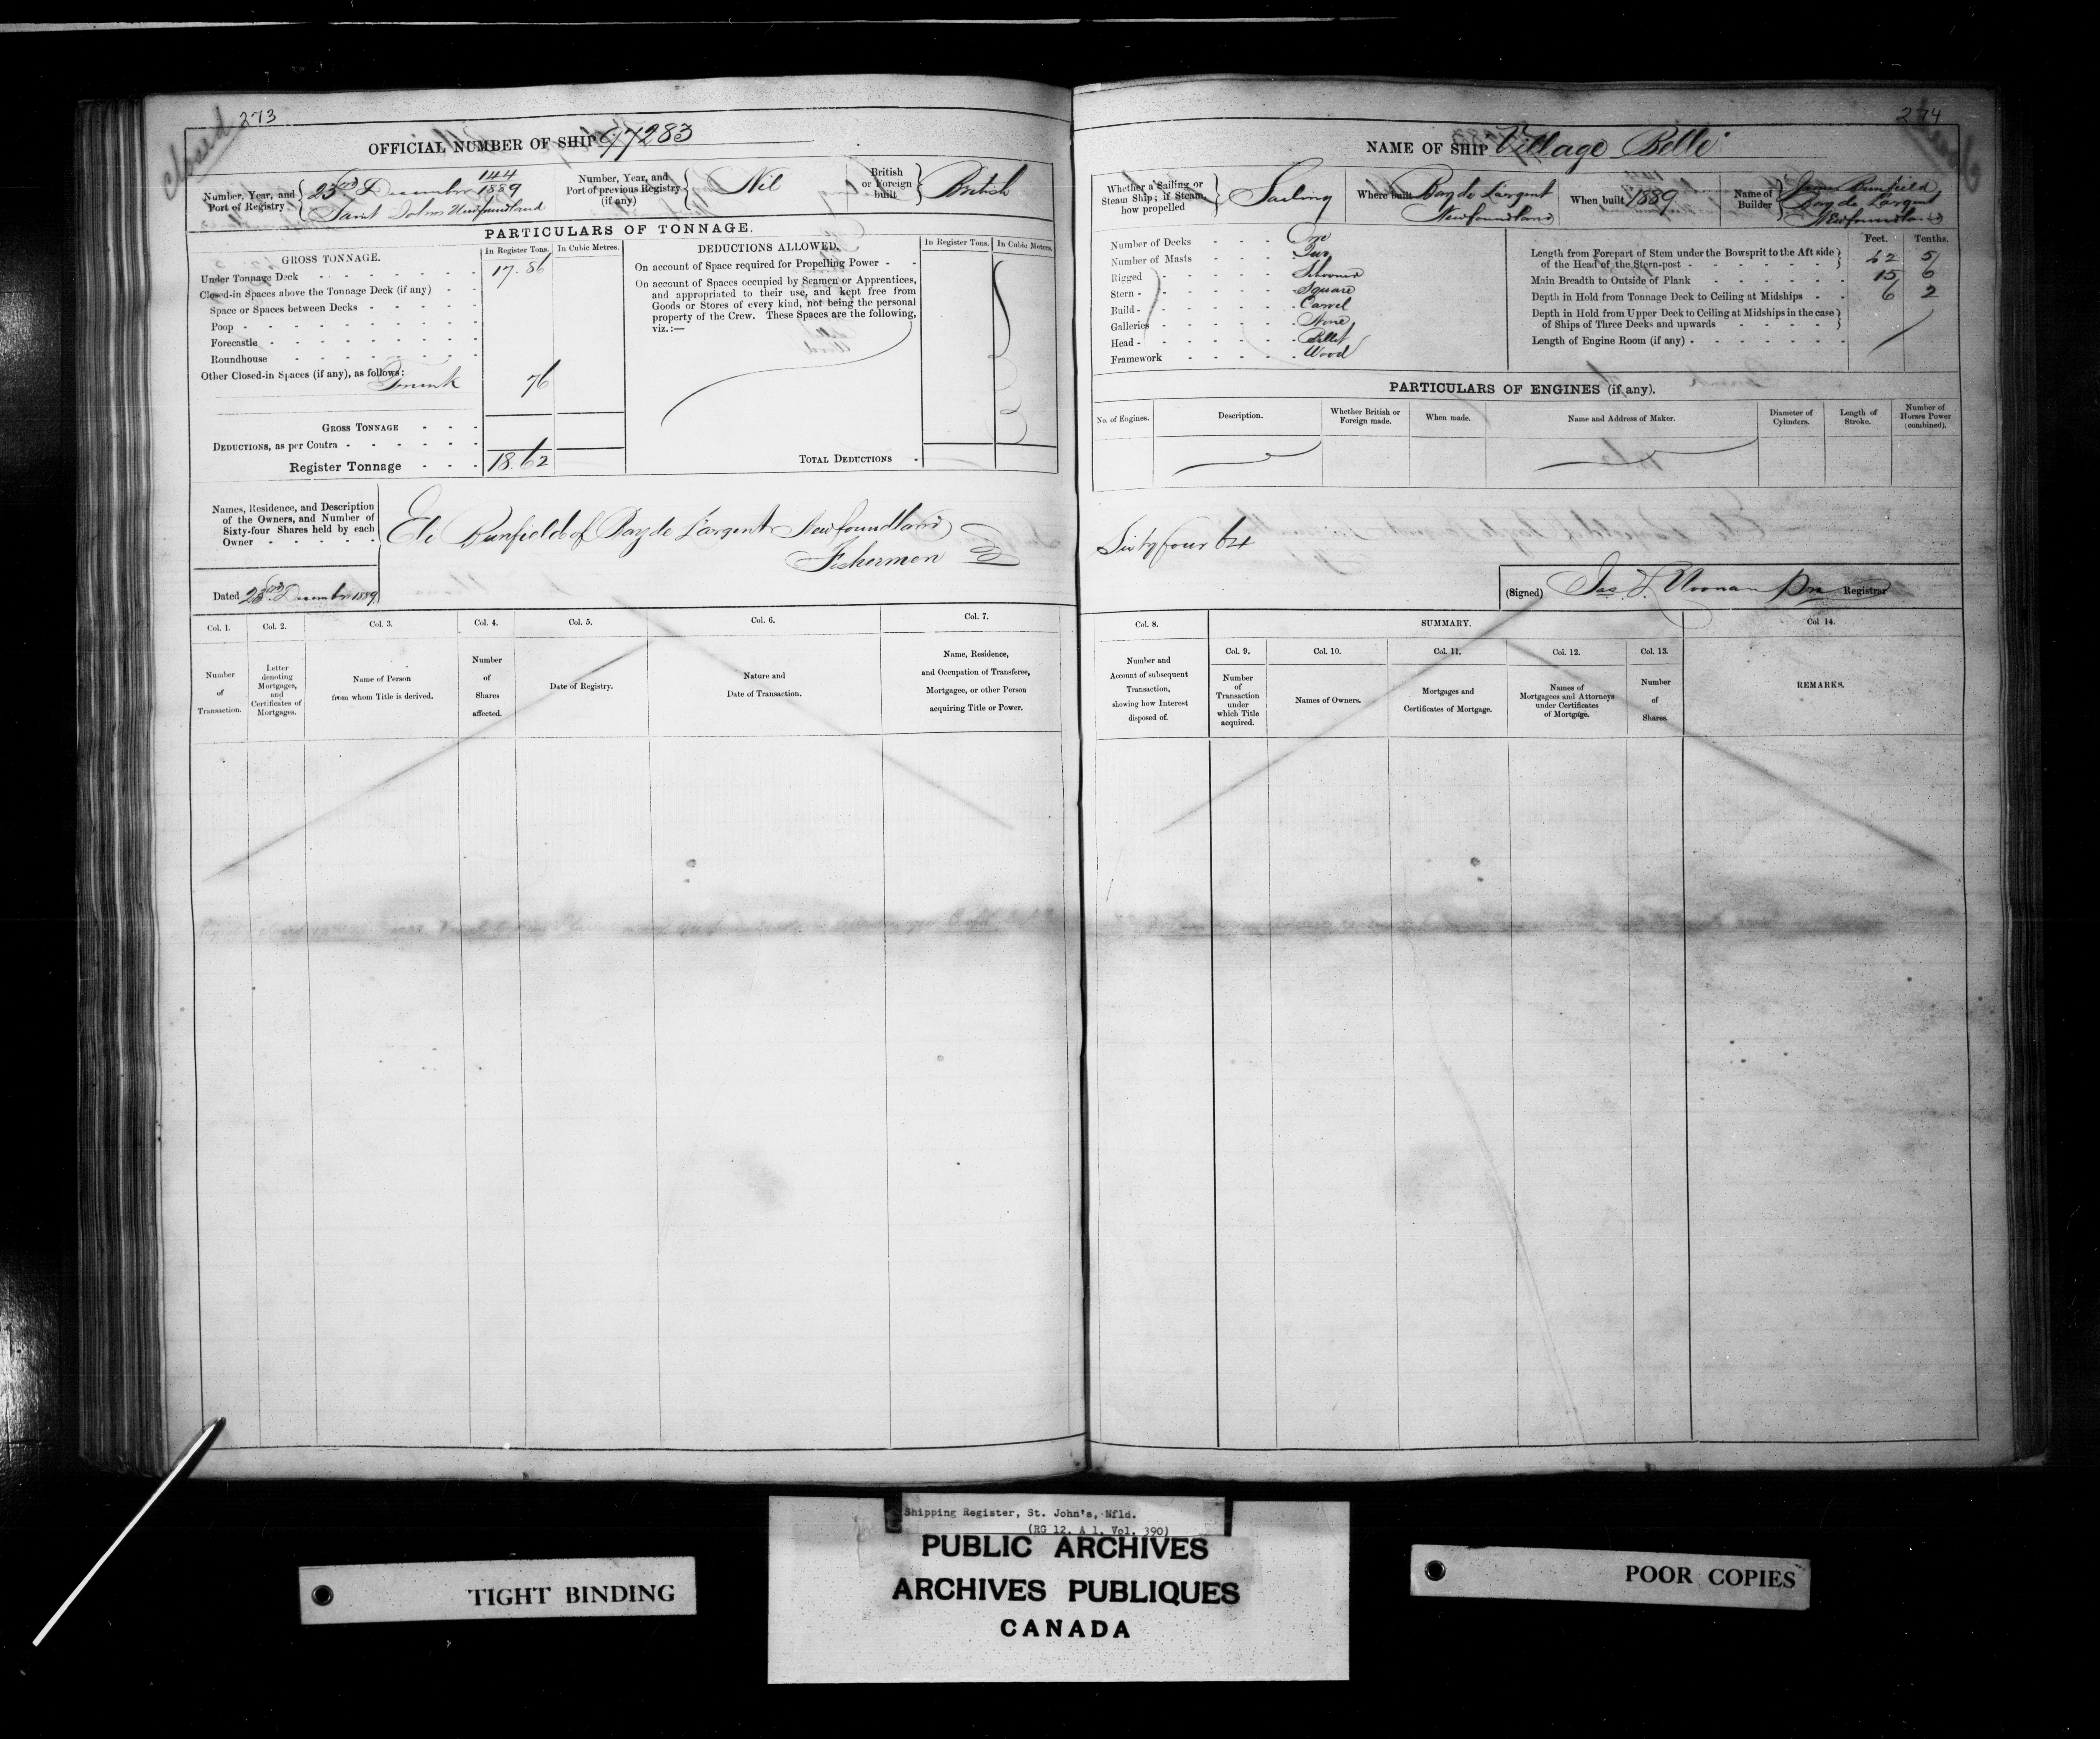 closed
273
OFFICIAL NUMBER OF SHIP 97283
Number, Year, and Port of Registry
144
23rd December 1889
Saint Johns Newfoundland
Number, Year, and Port of previous Registry (if any)
Nil
British or Foreign built
British
PARTICULARS OF TONNAGE.
GROSS TONNAGE.
In Register Tons.
In Cubic Metres.
DEDUCTIONS ALLOWED.
In Register Tons.
In Cubic Metres.
Under Tonnage Deck 17.86
Closed-in Spaces above the Tonnage Deck (if any)
Space or Spaces between Decks
Poop
Forecastle
Roundhouse
Other Closed-in Spaces (if any), as follows:
Trunk 76
GROSS TONNAGE
DEDUCTIONS, as per Contra
Register Tonnage 18.62
On account of Space required for Propelling Power
On account of Spaces occupied by Seamen or Apprentices,
and appropriated to their use, and kept free from
Goods or Stores of every kind, not being the personal
property of the Crew. These Spaces are the following,
viz.:—
TOTAL DEDUCTIONS
Names, Residence, and Description
of the Owners, and Number of
Sixty-four Shares held by each
Owner
Eli Banfield of Bay de Largent Newfoundland
Fisherman
Dated 23rd December 1889
Col. 1.
Number of Transaction.
Col. 2.
Letter denoting Mortgages, and Certificates of Mortgages.
Col. 3.
Name of Person
from whom Title is derived.
Col. 4.
Number of Shares affected.
Col. 5.
Date of Registry.
Col. 6.
Nature and
Date of Transaction.
Col. 7.
Name, Residence,
and Occupation of Transferee,
Mortgagee, or other Person
acquiring Title or Power.
274
NAME OF SHIP Village Belle
Whether a Sailing or
Steam Ship; if Steam,
how propelled
Sailing
Where built
Bay de Largent
Newfoundland
When built 1889
Name of Builder
James Banfield
Bay de Largent
Newfoundland
Number of Decks One
Number of Masts Two
Rigged Schooner
Stern Square
Build Carvel
Galleries None
Head Billet
Framework Wood
Feet.
Tenths.
Length from Forepart of Stem under the Bowsprit to the Aft side
of the Head of the Stern-post 42 5
Main Breadth to Outside of Plank 15 6
Depth in Hold from Tonnage Deck to Ceiling at Midships 6 2
Depth in Hold from Upper Deck to Ceiling at Midships in the case
of Ships of Three Decks and upwards
Length of Engine Room (if any)
PARTICULARS OF ENGINES (if any).
No. of Engines.
Description.
Whether British or Foreign made.
When made.
Name and Address of Maker.
Diameter of Cylinders.
Length of Stroke.
Number of Horses Power (combined).
Sixty four 64
(Signed) Jas L Noonan Registrar
Col. 8.
Number and
Account of subsequent
Transaction,
showing how Interest
disposed of.
SUMMARY.
Col. 9.
Number of Transaction under which Title acquired.
Col. 10.
Names of Owners.
Col. 11.
Mortgages and
Certificates of Mortgage.
Col. 12.
Names of
Mortgagees and Attorneys
under Certificates
of Mortgage.
Col. 13.
Number of Shares.
Col 14.
REMARKS.
TIGHT BINDING
Shipping Register, St. John's, Nfld.
(RG 12, A 1, Vol. 390)
PUBLIC ARCHIVES
ARCHIVES PUBLIQUES
CANADA
POOR COPIES